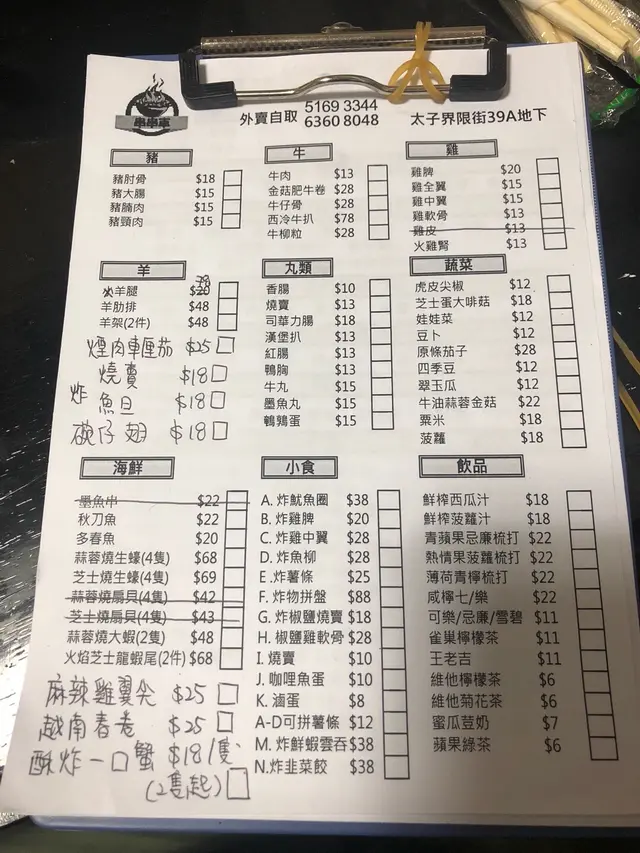 串串車
外賣自取 5169 3344
6360 8048
太子界限街39A地下
豬
豬肘骨 $18
豬大腸 $15
豬腩肉 $15
豬頸肉 $15
牛
牛肉 $13
金菇肥牛卷 $28
牛仔骨 $28
西冷牛扒 $78
牛柳粒 $28
雞
雞髀 $20
雞全翼 $15
雞中翼 $15
雞軟骨 $13
雞皮 $13
火雞腎 $13
羊
羊腿 $20
羊肋排 $48
羊架(2件) $48
煙肉車厘茄 $25
燒賣 $18
炸魚旦 $18
碗仔翅 $18
丸類
香腸 $10
燒賣 $13
司華力腸 $18
漢堡扒 $13
紅腸 $13
鴨胸 $13
牛丸 $15
墨魚丸 $15
鵪鶉蛋 $15
蔬菜
虎皮尖椒 $12
芝士蛋大啡菇 $18
娃娃菜 $12
豆卜 $12
原條茄子 $28
四季豆 $12
翠玉瓜 $12
牛油蒜蓉金菇 $22
粟米 $18
菠蘿 $18
海鮮
墨魚串 $22
秋刀魚 $22
多春魚 $20
蒜蓉燒生蠔(4隻) $68
芝士燒生蠔(4隻) $69
蒜蓉燒扇貝(4隻) $42
芝士燒扇貝(4隻) $43
蒜蓉燒大蝦(2隻) $48
火焰芝士龍蝦尾(2件) $68
麻辣雞翼尖 $25
越南春卷 $25
酥炸一口蟹 $18/隻
(2隻起)
小食
A. 炸魷魚圈 $38
B. 炸雞髀 $20
C. 炸雞中翼 $28
D. 炸魚柳 $28
E. 炸薯條 $25
F. 炸物拼盤 $88
G. 炸椒鹽燒賣 $18
H. 椒鹽雞軟骨 $28
I. 燒賣 $10
J. 咖哩魚蛋 $10
K. 滷蛋 $8
A-D可拼薯條 $12
M. 炸鮮蝦雲吞 $38
N. 炸韭菜餃 $38
飲品
鮮榨西瓜汁 $18
鮮榨菠蘿汁 $18
青蘋果忌廉梳打 $22
熱情果菠蘿梳打 $22
薄荷青檸梳打 $22
咸檸七/樂 $22
可樂/忌廉/雪碧 $11
雀巢檸檬茶 $11
王老吉 $11
維他檸檬茶 $6
維他菊花茶 $6
蜜瓜荳奶 $7
蘋果綠茶 $6